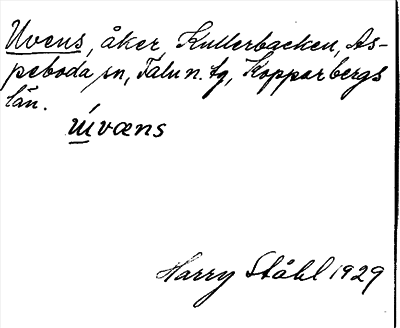 Uvens, åker, Kullerbacken, As-
peboda sn, Falu n. tg, Kopparbergs
län.
ù́væns
Harry Ståhl 1929